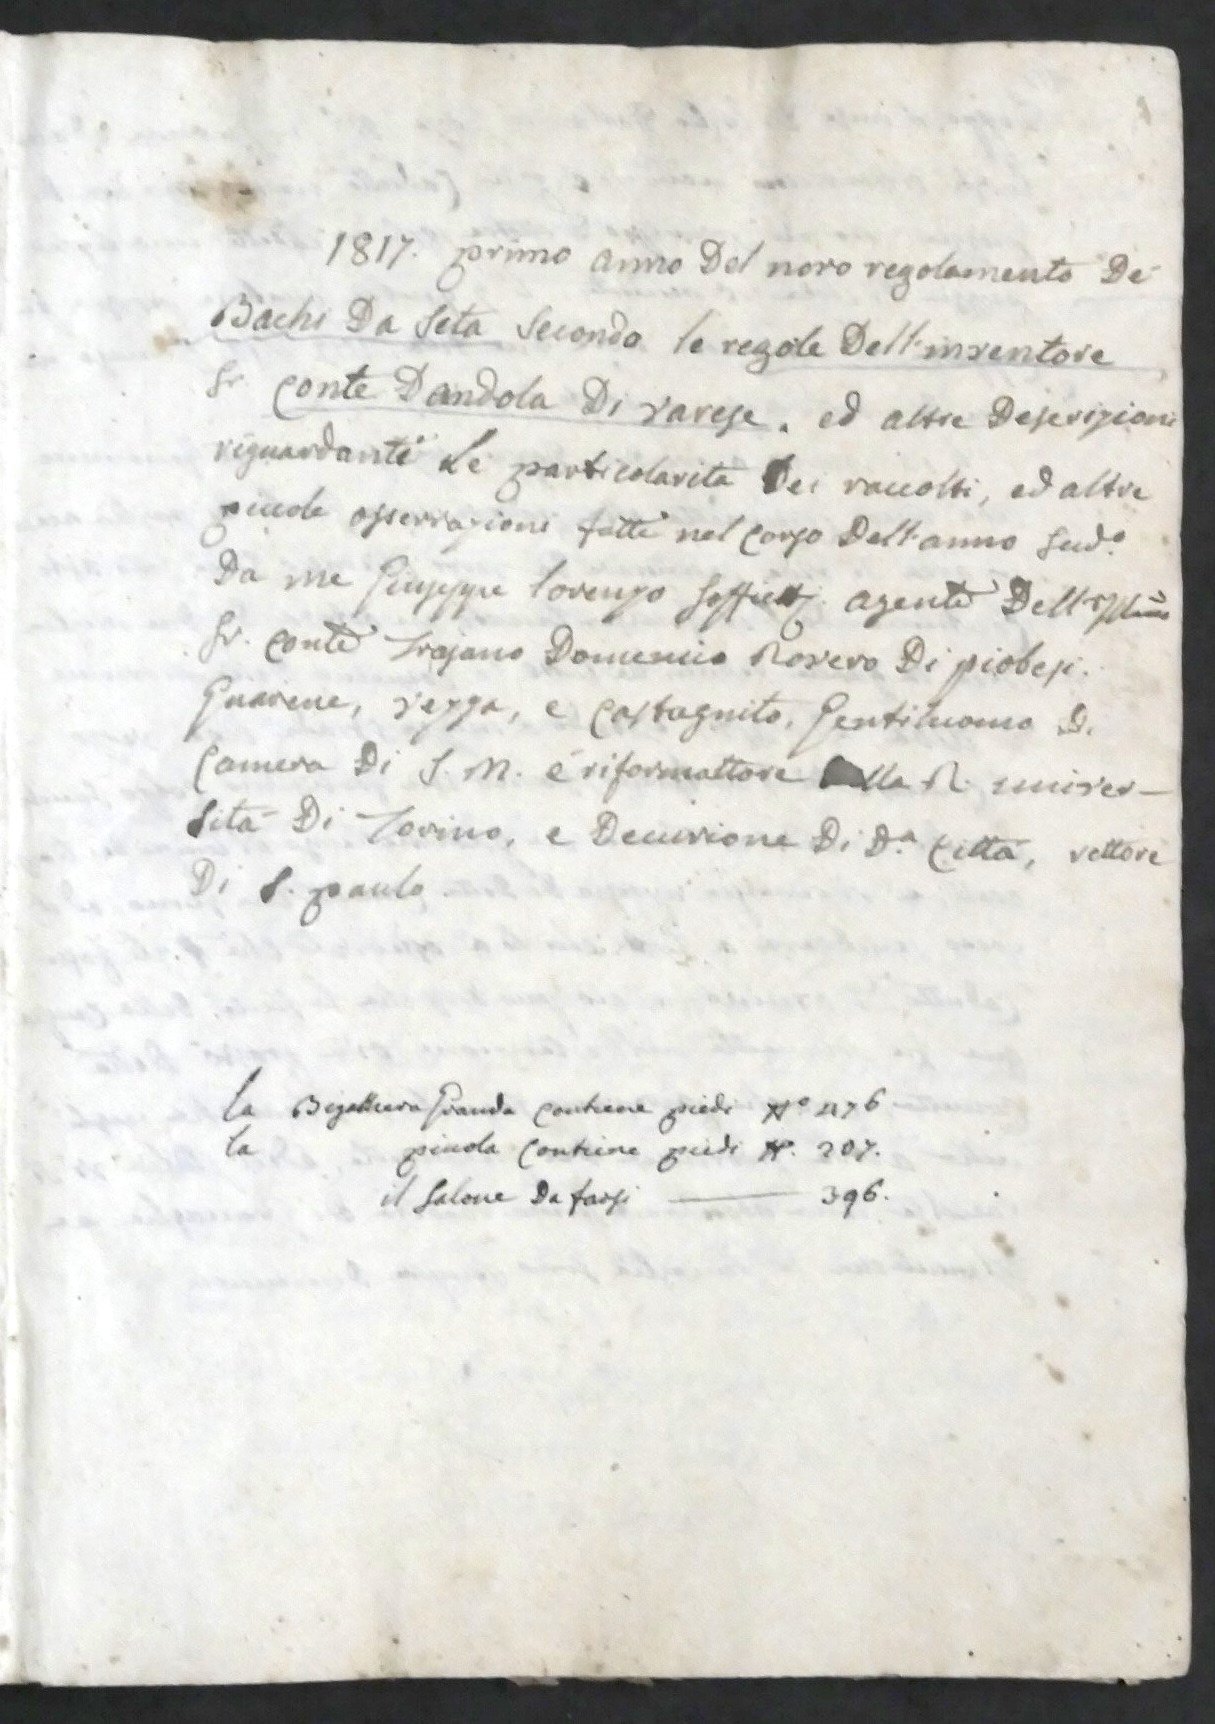 1817. primo anno Del novo regolamento De
Bachi Da Seta Secondo le regole Dell'inventore
Sr. Conte Dandola Di Varese. ed altre Descrizioni
riguardanti Le particolarità Dei raccolti, ed altre
picole osservazioni fatte nel Corso Dell'anno Sudº.
Da me Giuseppe Lorenzo agente Dell' Illmo
Sr. Conte Trajano Domenico Rovero Di piobesi.
Guarene, Vezza, e Castagnito, Gentiluomo Di
Camera Di S. M. e riformattore alla R. univer-
sità Di Torino, e Decurione Di D.ª Città, rettore
Di S. paulo
la Bigattiera Granda Contiene piedi Nº 476
la picola Contiene piedi Nº. 207.
il Salone Da farsi — 396.